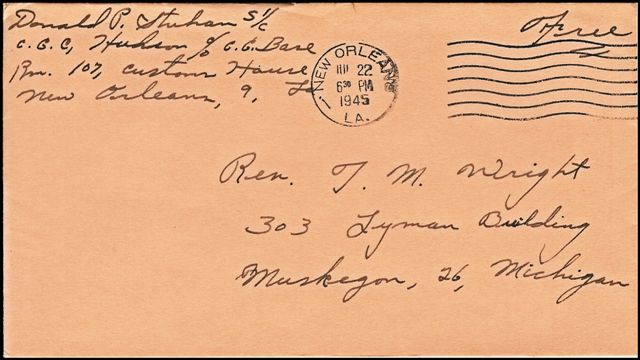 Donald P. Stuhan S1/c
C.G.C. Hudson c/o C.G. Base
Rm. 107, Custom House
New Orleans, 9, La
Free
NEW ORLEANS
22
6 30 PM
1945
LA.
Rev. T. M. Wright
303 Lyman Building
Muskegon, 26, Michigan